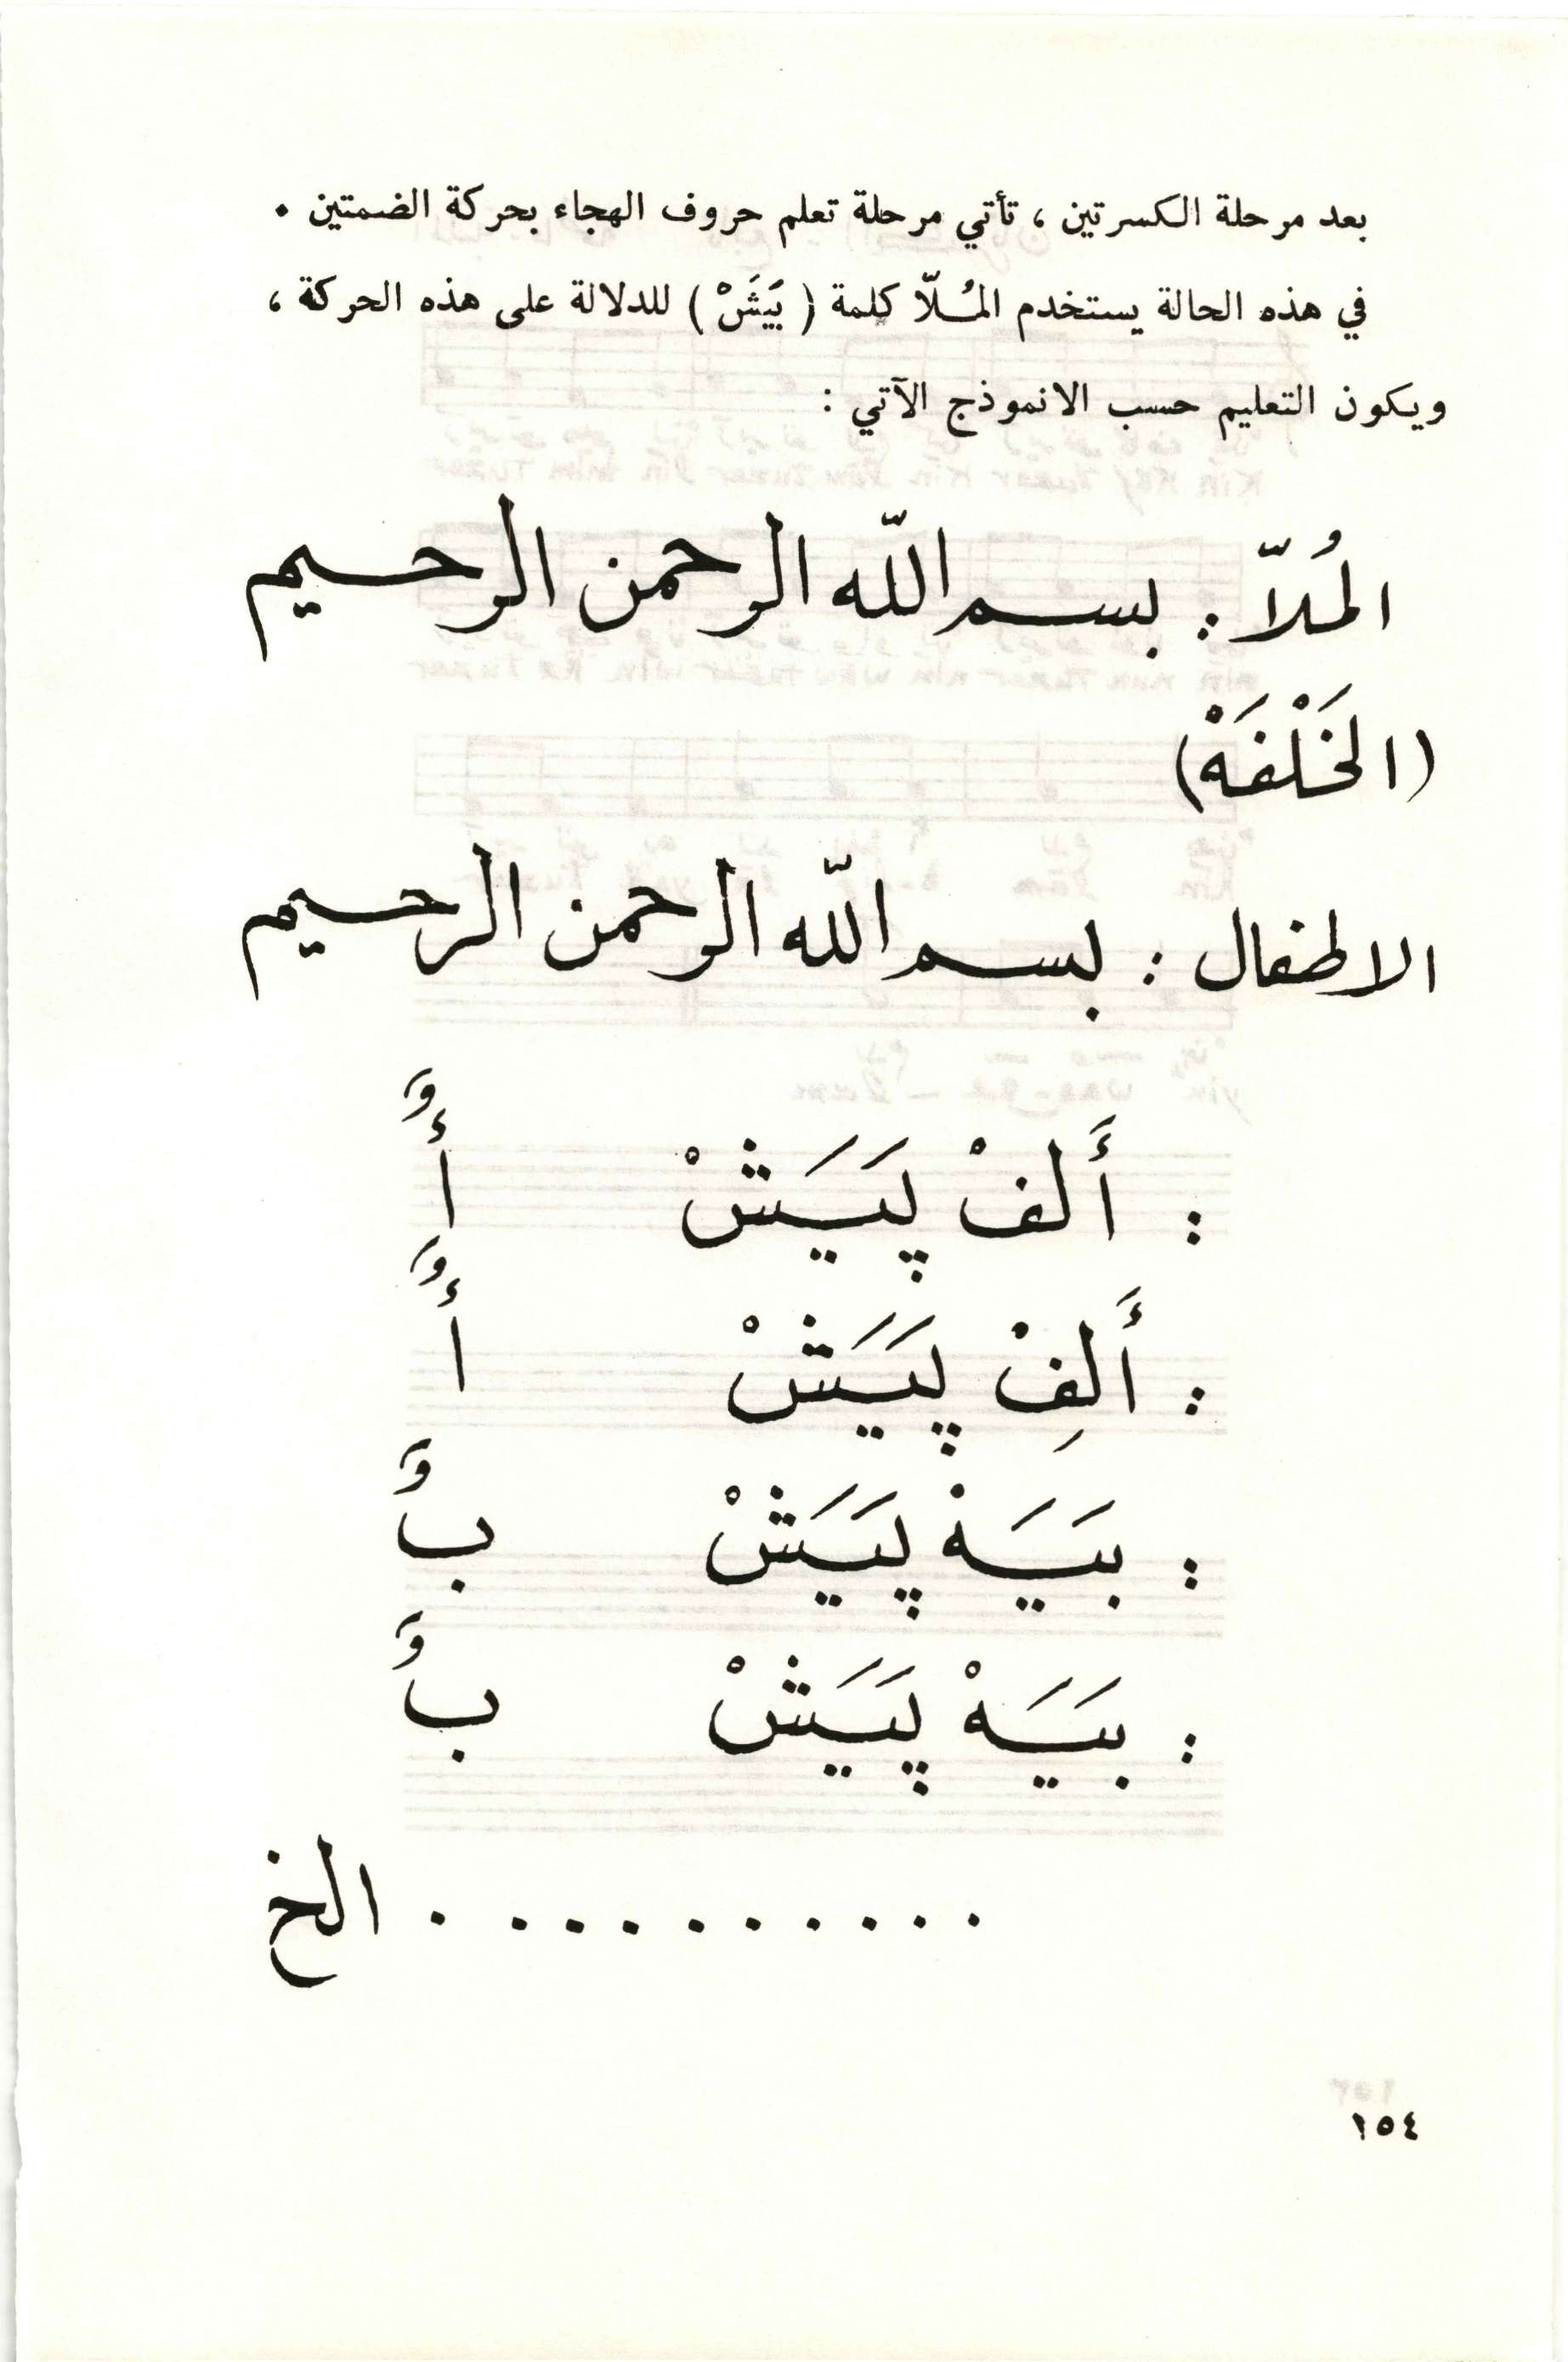 بعد مرحلة الكسرتين ، تأتي مرحلة تعلم حروف الهجاء بحركة الضمتين .
في هذه الحالة يستخدم المُلاّ كلمة ( بَيَشْ ) للدلالة على هذه الحركة ،
ويكون التعليم حسب الانموذج الآتي :
المُلاّ : بسم اللّه الرحمن الرحيم
(الخَلْفَهْ)
الاطفال : بسم اللّه الرحمن الرحيم
: أَلفْ پَيَشْ أُ
: أَلِفْ پَيَشْ أُ
: بَيَهْ پَيَشْ بُ
: بَيَهْ پَيَشْ بُ
. . . . . . . . . . الخ
١٥٤